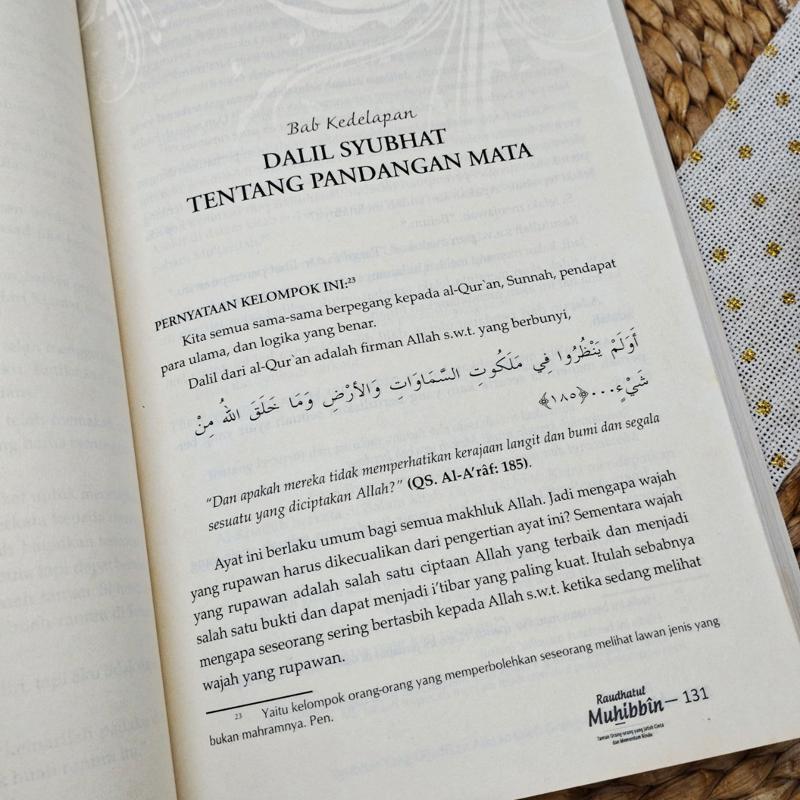 Bab Kedelapan
DALIL SYUBHAT
TENTANG PANDANGAN MATA
PERNYATAAN KELOMPOK INI:²³
Kita semua sama-sama berpegang kepada al-Qur`an, Sunnah, pendapat
para ulama, dan logika yang benar.
Dalil dari al-Qur`an adalah firman Allah s.w.t. yang berbunyi,
أَوَلَمْ يَنْظُرُوا فِي مَلَكُوتِ السَّمَاوَاتِ وَالأَرْضِ وَمَا خَلَقَ اللهُ مِنْ
شَيْءٍ...﴿١٨٥﴾
"Dan apakah mereka tidak memperhatikan kerajaan langit dan bumi dan segala
sesuatu yang diciptakan Allah?" (QS. Al-A'râf: 185).
Ayat ini berlaku umum bagi semua makhluk Allah. Jadi mengapa wajah
yang rupawan harus dikecualikan dari pengertian ayat ini? Sementara wajah
yang rupawan adalah salah satu ciptaan Allah yang terbaik dan menjadi
salah satu bukti dan dapat menjadi i'tibar yang paling kuat. Itulah sebabnya
mengapa seseorang sering bertasbih kepada Allah s.w.t. ketika sedang melihat
wajah yang rupawan.
²³ Yaitu kelompok orang-orang yang memperbolehkan seseorang melihat lawan jenis yang
bukan mahramnya. Pen.
Raudhatul
Muhibbîn — 131
Taman Orang-orang yang Jatuh Cinta
dan Memendam Rindu